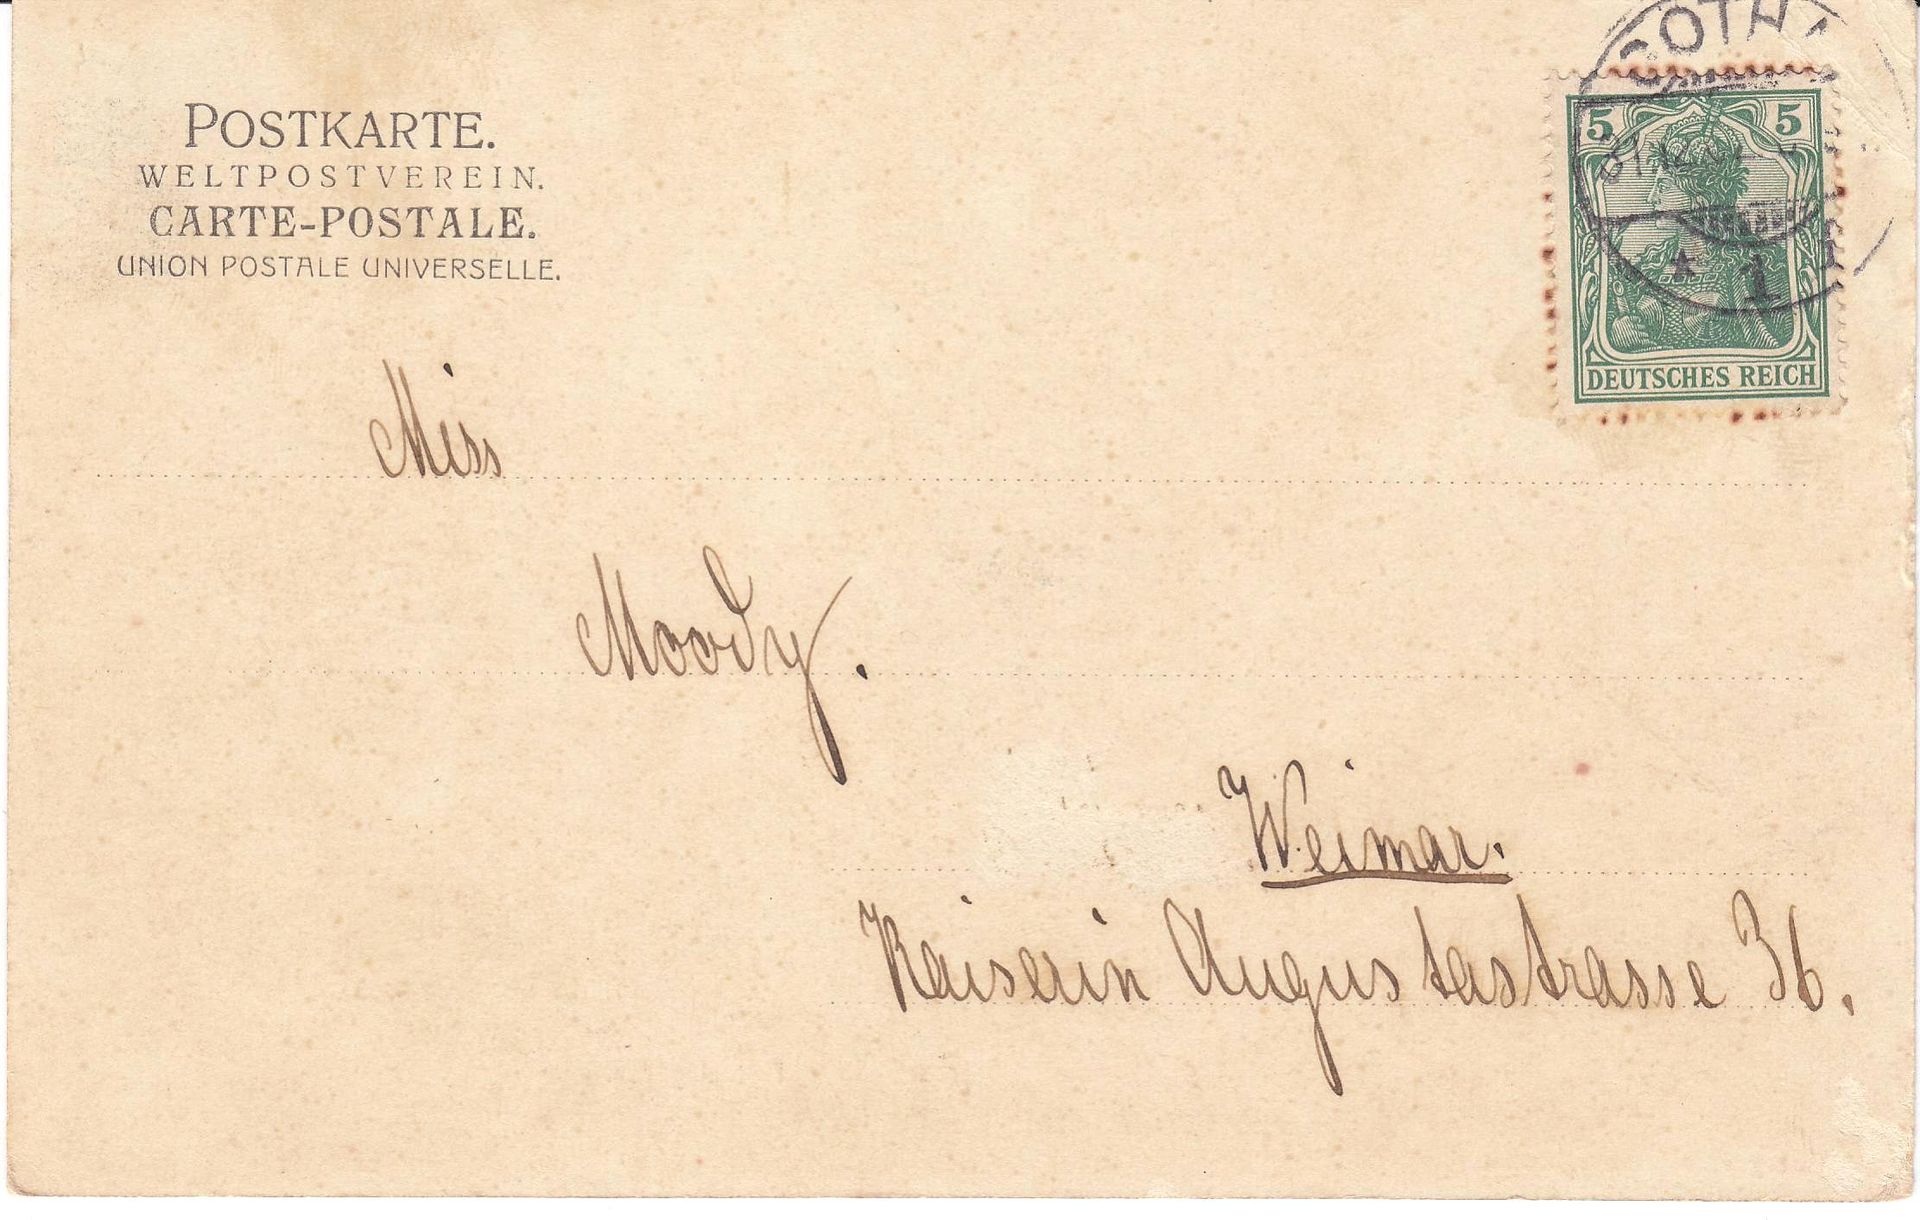 POSTKARTE.
WELTPOSTVEREIN.
CARTE-POSTALE.
UNION POSTALE UNIVERSELLE.
GOTHA
5 5
* 1
DEUTSCHES REICH
Miss
Moody.
Weimar.
Kaiserin Augustastrasse 36.